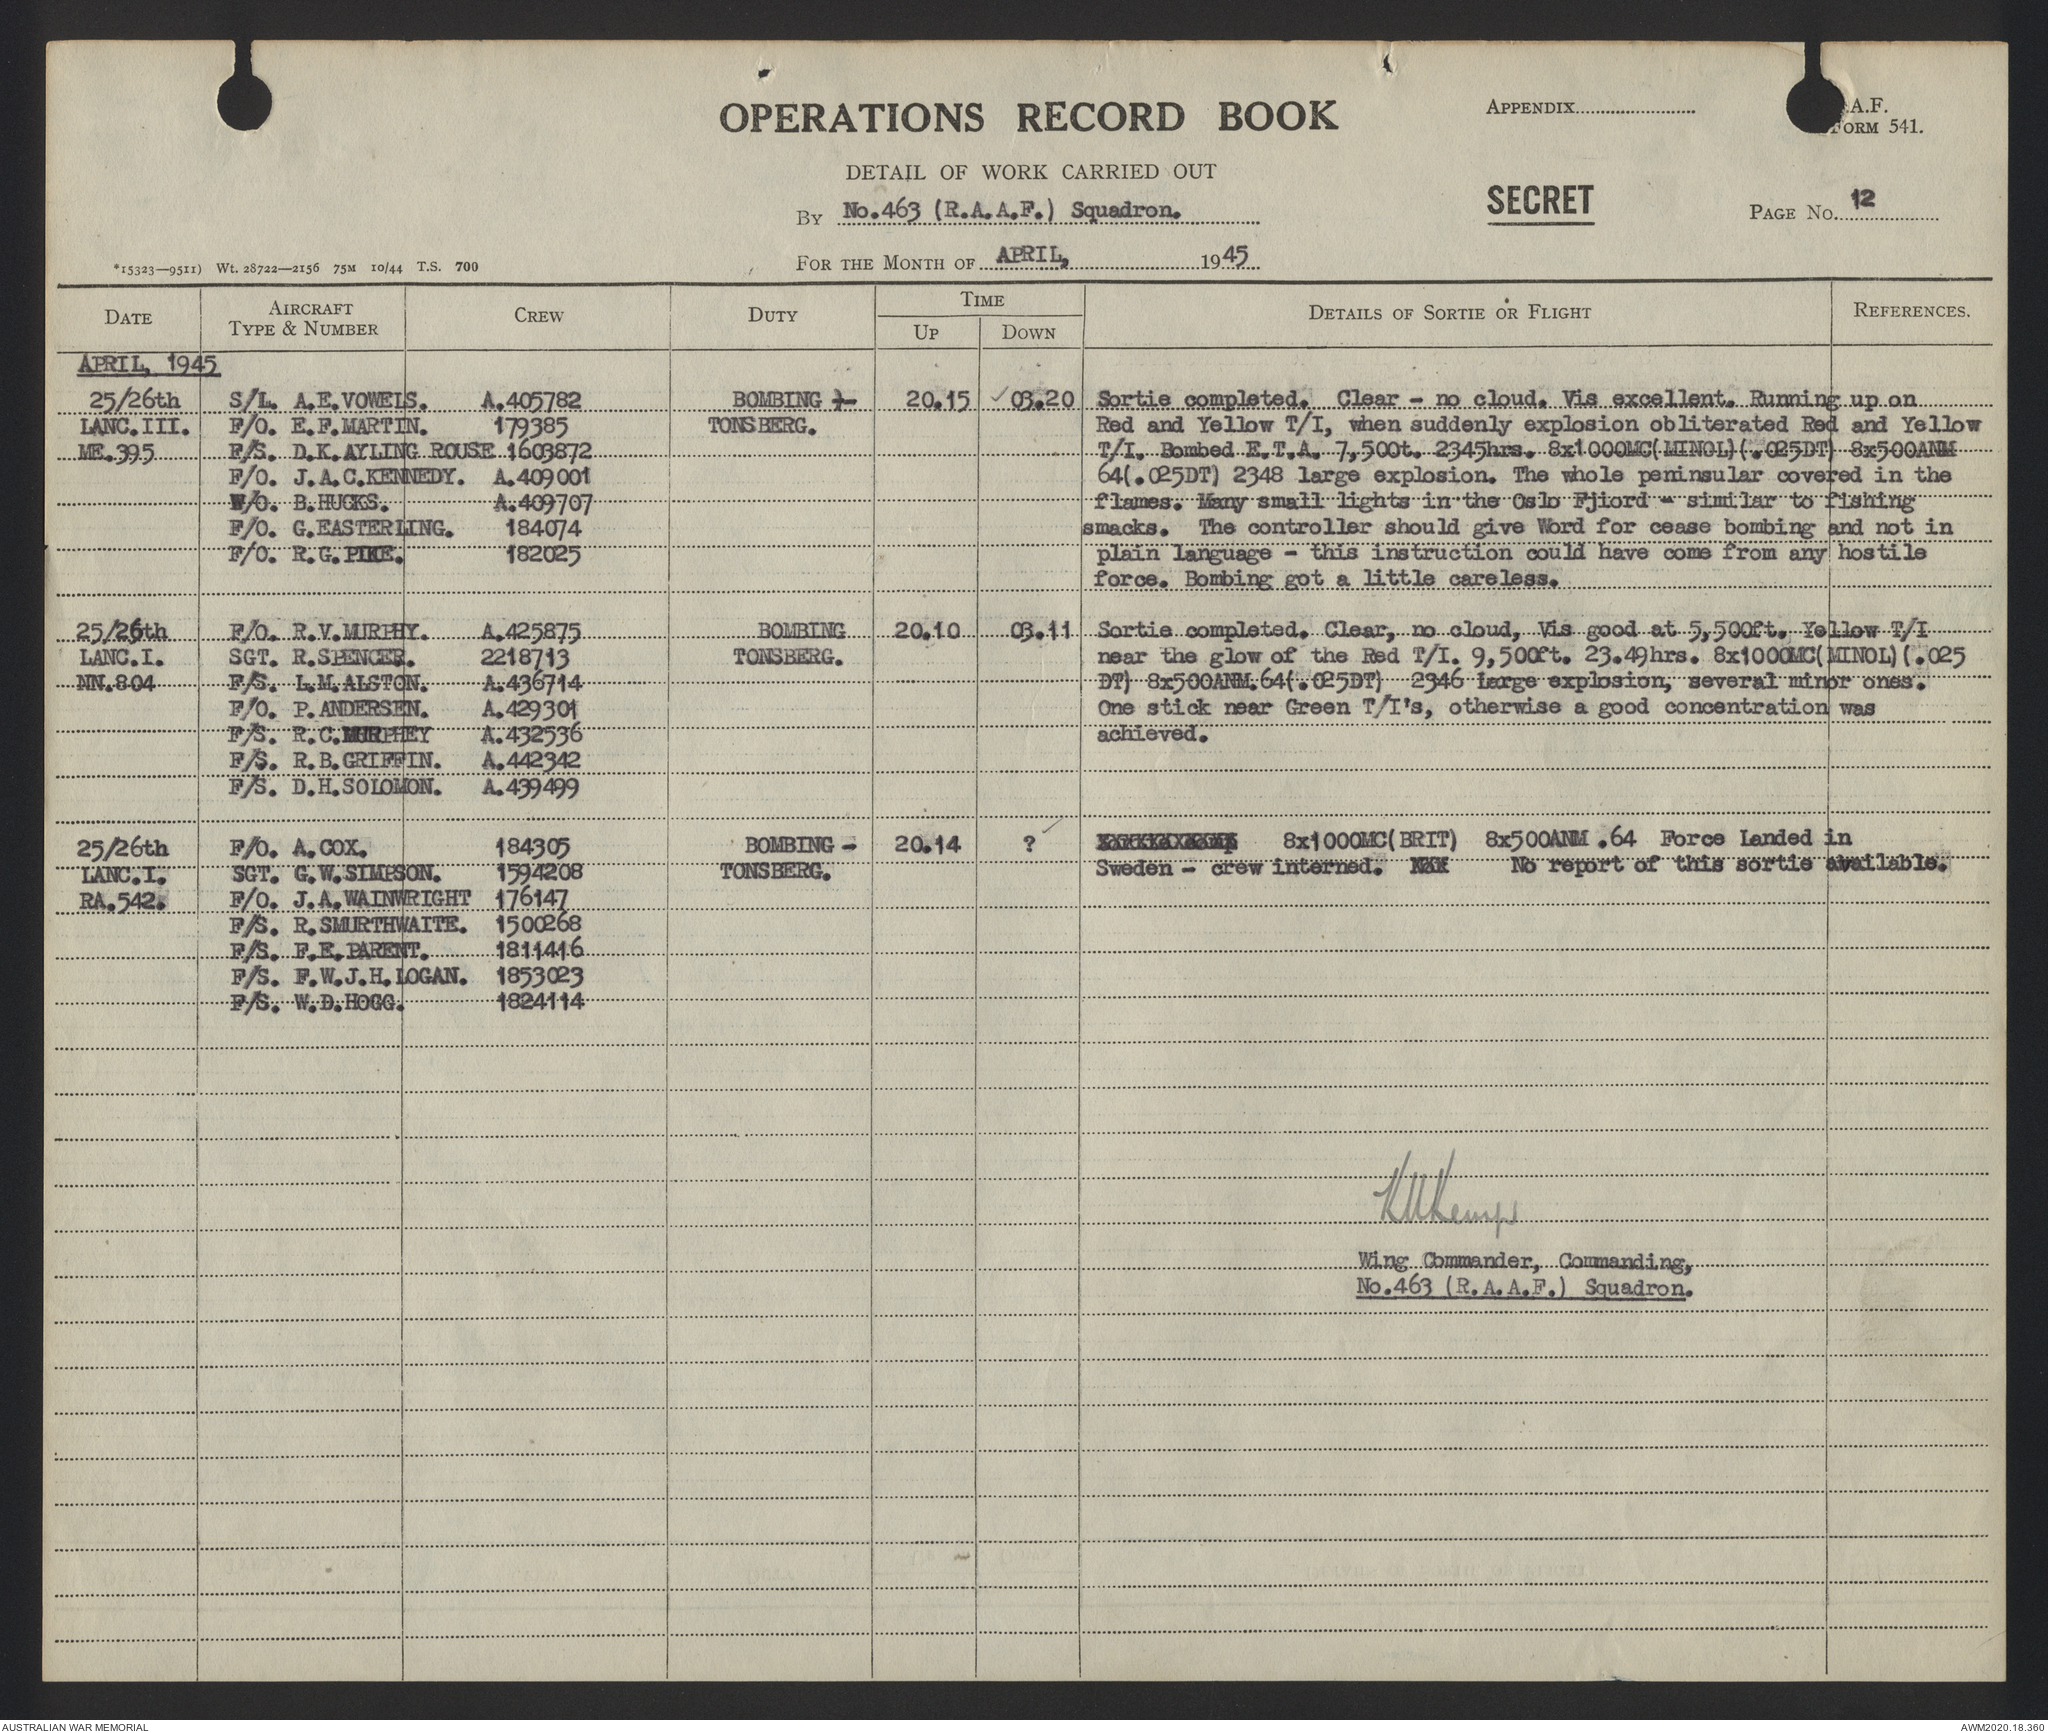 OPERATIONS RECORD BOOK
APPENDIX
.A.F.
FORM 541.
DETAIL OF WORK CARRIED OUT
SECRET
By No.463 (R.A.A.F.) Squadron.
PAGE No. 12
FOR THE MONTH OF APRIL, 1945
*15323—9511) Wt. 28722—2156 75M 10/44 T.S. 700
DATE AIRCRAFT TYPE & NUMBER CREW DUTY TIME UP DOWN DETAILS OF SORTIE OR FLIGHT REFERENCES.
APRIL, 1945
25/26th S/L. A.E.VOWELS. A.405782 BOMBING - 20.15 03.20 Sortie completed. Clear - no cloud. Vis excellent. Running up on
LANC.III. F/O. E.F.MARTIN. 179385 TONSBERG. Red and Yellow T/I, when suddenly explosion obliterated Red and Yellow
ME.395 F/S. D.K.AYLING ROUSE 1603872 T/I. Bombed E.T.A. 7,500t. 2345hrs. 8x1000MC(MINOL)(.025DT) 8x500ANM
F/O. J.A.C.KENNEDY. A.409001 64(.025DT) 2348 large explosion. The whole peninsular covered in the
W/O. B.HUCKS. A.409707 flames. Many small lights in the Oslo Fjiord - similar to fishing
F/O. G.EASTERLING. 184074 smacks. The controller should give Word for cease bombing and not in
F/O. R.G.PIKE. 182025 plain language - this instruction could have come from any hostile
force. Bombing got a little careless.
25/26th F/O. R.V.MURPHY. A.425875 BOMBING 20.10 03.11 Sortie completed. Clear, no cloud, Vis good at 5,500ft. Yellow T/I
LANC.I. SGT. R.SPENCER. 2218713 TONSBERG. near the glow of the Red T/I. 9,500ft. 23.49hrs. 8x1000MC(MINOL)(.025
NN.804 F/S. L.M.ALSTON. A.436714 DT) 8x500ANM.64(.025DT) 2346 large explosion, several minor ones.
F/O. P.ANDERSEN. A.429301 One stick near Green T/I's, otherwise a good concentration was
F/S. R.C.MURPHEY A.432536 achieved.
F/S. R.B.GRIFFIN. A.442342
F/S. D.H.SOLOMON. A.439499
25/26th F/O. A.COX. 184305 BOMBING - 20.14 ? 8x1000MC(BRIT) 8x500ANM .64 Force Landed in
LANC.I. SGT. G.W.SIMPSON. 1594208 TONSBERG. Sweden - crew interned. No report of this sortie available.
RA.542. F/O. J.A.WAINWRIGHT 176147
F/S. R.SMURTHWAITE. 1500268
F/S. F.E.PARENT. 1811416
F/S. F.W.J.H.LOGAN. 1853023
F/S. W.D.HOGG. 1824114
Wing Commander, Commanding,
No.463 (R.A.A.F.) Squadron.
AUSTRALIAN WAR MEMORIAL
AWM2020.18.360